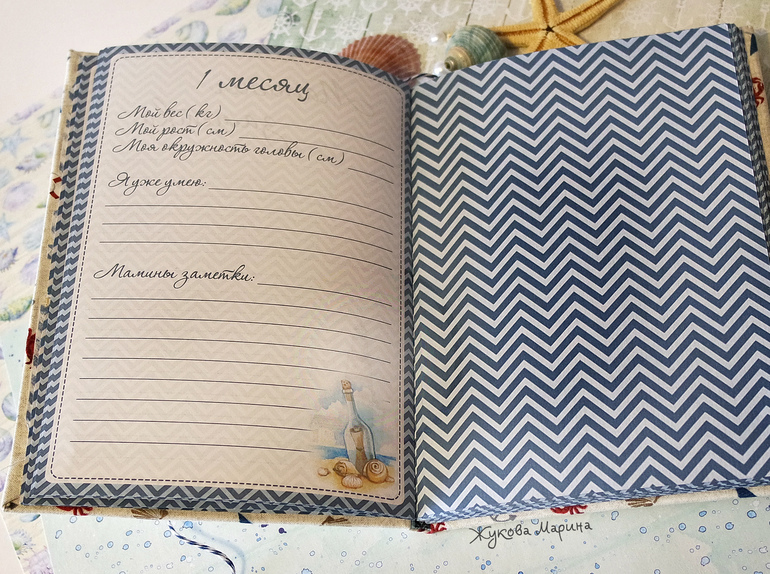 1 месяц
Мой вес (кг)
Мой рост (см)
Моя окружность головы (см)
Я уже умею:
Мамины заметки:
Жукова Марина